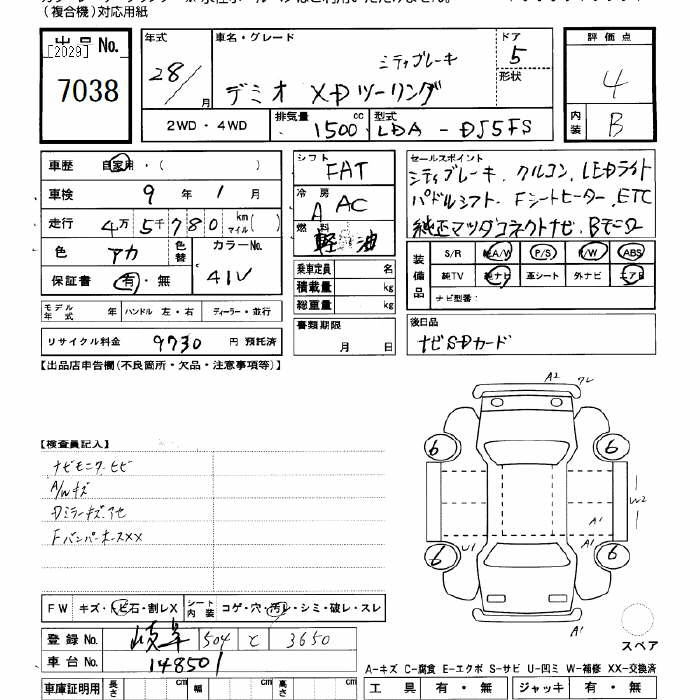 (複合機)対応用紙
出品No. [2029] 7038
年式 28/ 月
車名・グレード シティブレーキ
デミオ XDツーリング
ドア 5
形状
2WD・4WD
排気量 1500 cc
型式 LDA-DJ5FS
評価点 4
内装 B
車歴 自家用・( )
車検 9年 1月
走行 4万5千780 km マイル( )
色 アカ
色替
カラーNo. 41V
保証書 有・無
モデル年式 年 ハンドル 左・右 ディーラー・並行
リサイクル料金 9730 円 預託済
シフト FAT
冷房 A AC
燃料 軽油
乗車定員 名
積載量 kg
総重量 kg
書類期限
月 日
セールスポイント
シティブレーキ、クルコン、LEDライト
パドルシフト、Fシートヒーター、ETC
純正マツダコネクトナビ、Bモニター
装備品
S/R 純A/W P/S P/W ABS
純TV 純ナビ 革シート 外ナビ エアB
ナビ型番:
後日品
ナビSDカード
【出品店申告欄(不良箇所・欠品・注意事項等)】
【検査員記入】
ナビモニターヒビ
A/Wキズ
Dミラーキズアセ
FバンパーホースXX
A2
6 6
W2
A1
U1 A1
6 6
A1
スペア
FW キズ・トビ石・割レX
シート内装 コゲ・穴・汚レ・シミ・破レ・スレ
登録No. 岐阜 504 と 3650
車台No. 148501
車庫証明用 長さ cm 幅 cm 高さ cm
A-キズ C-腐食 E-エクボ S-サビ U-凹ミ W-補修 XX-交換済
工具 有・無 ジャッキ 有・無